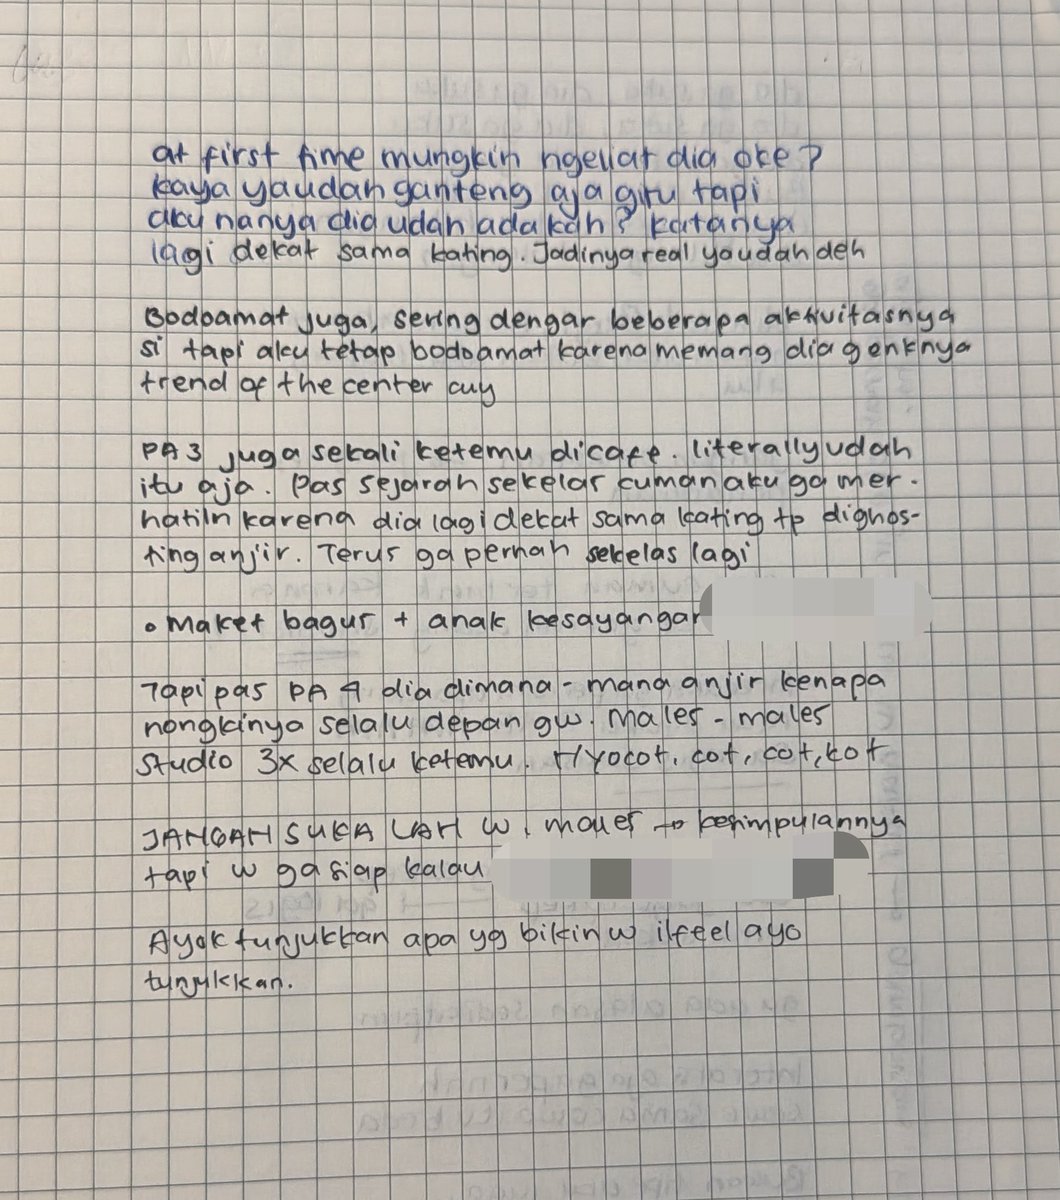 at first time mungkin ngeliat dia oke?
kaya yaudah ganteng aja gitu tapi
aku nanya dia udah ada kah? katanya
lagi dekat sama kating. Jadinya real yaudah deh
Bodoamat juga, sering dengar beberapa aktivitasnya
si tapi aku tetap bodoamat karena memang dia genknya
trend of the center cuy
PA 3 juga sekali ketemu dicafe. literally udah
itu aja. Pas sejarah sekelas cuman aku ga mer-
hatiin karena dia lagi dekat sama kating tp dighos-
ting anjir. Terus ga pernah sekelas lagi
• Maket bagus + anak kesayangan
Tapi pas PA 4 dia dimana-mana anjir kenapa
nongkinya selalu depan gw. Males-males
Studio 3x selalu ketemu. cot, cot, cot
JANGAN SUKA LAH W, males kesimpulannya
tapi w ga siap kalau
Ayok tunjukkan apa yg bikin w ilfeel ayo
tunjukkan.